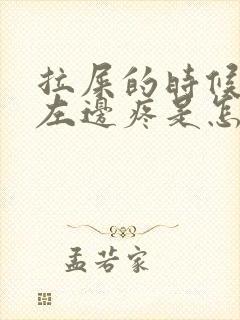 拉屎的時候
左邊疼是怎
孟若家